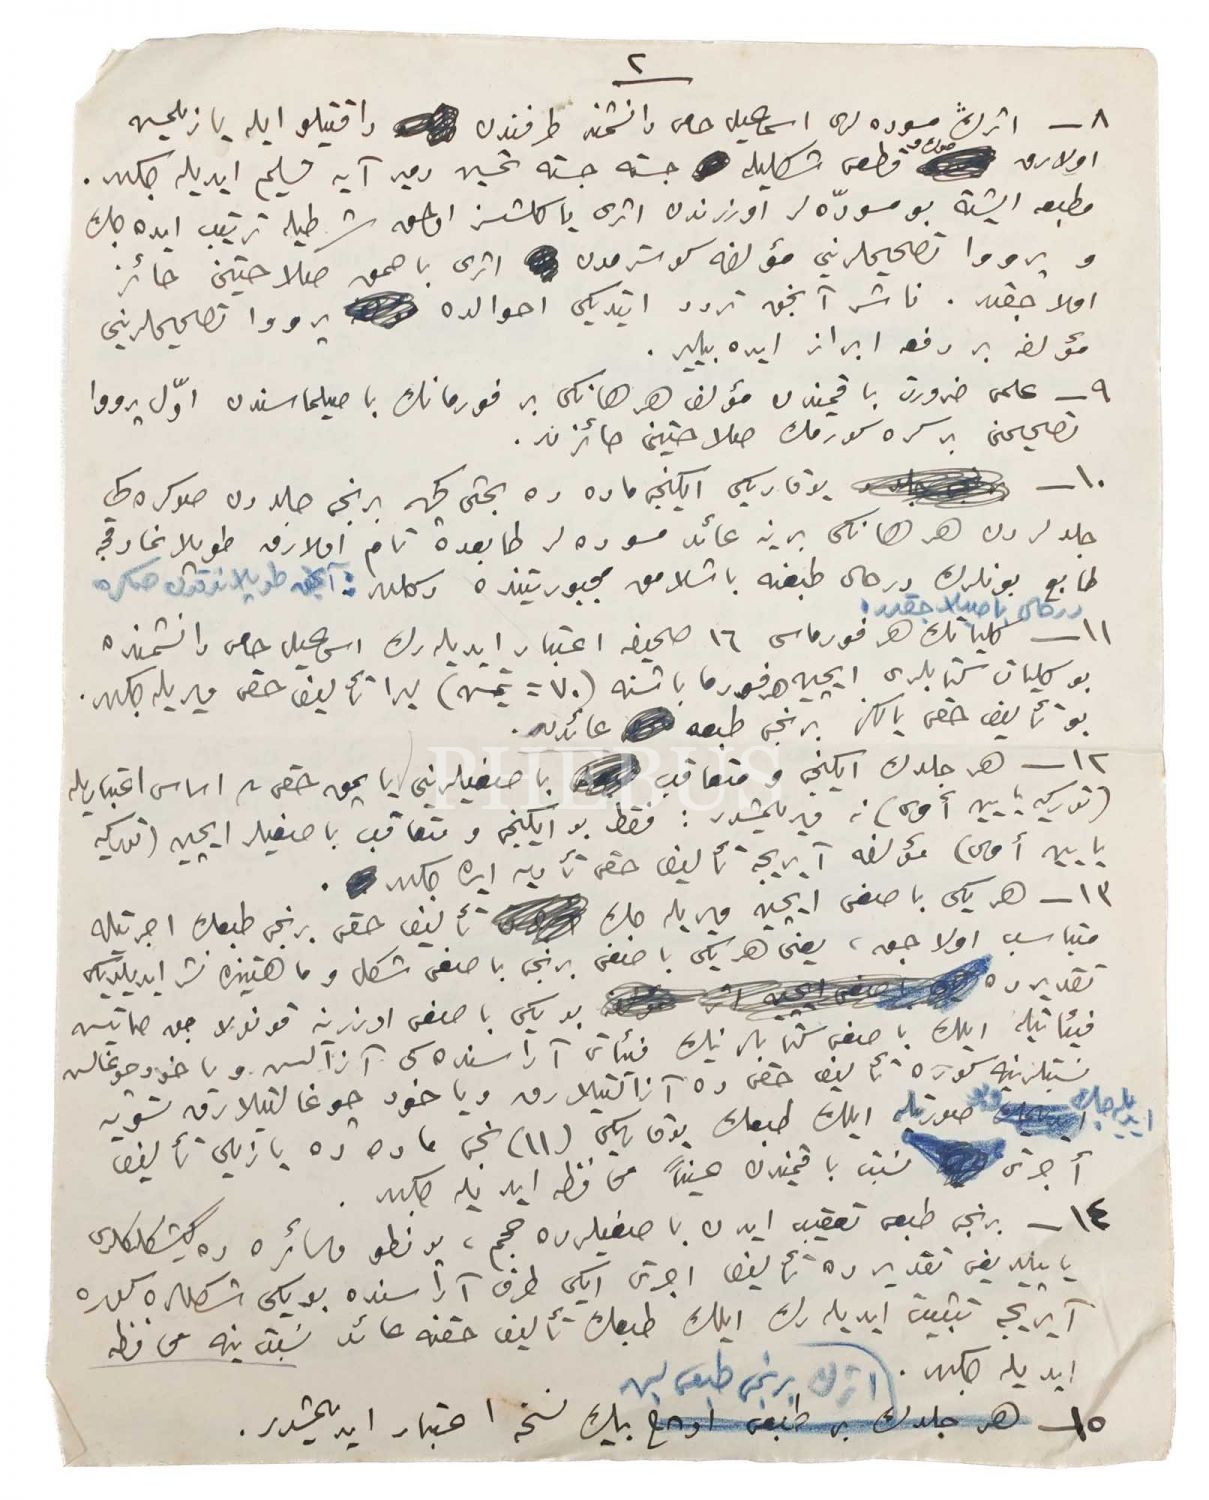 ٢
٨ — اثرك مسوده لری اسماعیل حامی دانشمند طرفندن داقتیلو ایله یازیلمش
اولارق صوك و قطعی شکلیله جسته جسته تحسین دمیر آیه تسلیم ایدیله جکدر .
مطبعه ایشته بو مسودّه لر اوزرندن اثری یاکلشسز اولمق شرطیله ترتیب ایده جك
و پرووا تصحیحلرینی مؤلفه کوسترمدن اثری باصمق صلاحیتنی حائز
اولاجقدر . ناشر آنجق تردد ایتدیکی احوالده پرووا تصحیحلرینی
مؤلفه بر دفعه ابراز ایده بیلیر .
٩ — علمی ضرورت باقمندن مؤلف هر هانکی بر فورمانك باصیلماسندن اوّل پرووا
تصحیحنی بر کره کورمك صلاحیتنی حائزدر .
١٠ — یوقاریکی ایکنجی ماده ده بحثی کچن برنجی جلددن صوکره کی
جلدلردن هر هانکی برینه عائد مسوده لر طابعده تام اولارق طوپلانمادقجه
طابع بونلرك درحال طبعنه باشلامق مجبوریتنده دکلدر : آنجق طوپلاندقدن صکره
درحال باصیلاجقدر !
١١ — کلیاتك هر فورماسی ١٦ صحیفه اعتبار ایدیله رك اسماعیل حامی دانشمنده
بو کلیات کتابلری ایچین هر فورما باشنه (٧٠ = یتمش) لیرا تألیف حقی ویریله جکدر .
بو تألیف حقی یالکز برنجی طبعه عائددر .
١٢ — هر جلدك ایکنجی و متعاقب باصقیلرینی یاپمق حقی ده اساس اعتباریله
(تورکیه یایین أوی) نه ویرلمشدر : فقط بو ایکنجی و متعاقب باصقیلر ایچین (تورکیه
یایین أوی) مؤلفه آیریجه تألیف حقی تأدیه ایده جکدر .
١٣ — هر یکی باصقی ایچین ویریله جك تألیف حقی برنجی طبعك اجرتیله
متناسب اولاجق ، یعنی هر یکی باصقی برنجی باصقی شکل و ماهیتنده نشر ایدیلدیکی
تقدیرده بو یکی باصقی اوزرینه قونولاجق صاتیش
فیئاتیله ایلك باصقی کتابلرینك فیئاتی آراسنده کی آزالیش ویاخود چوغالیش
نسبتلرینه کوره تألیف حقی ده آزالتیلارق ویاخود چوغالتیلارق تسویه
ایدیله جك صورتیله ایلك طبعك یوقاریکی (١١) نجی ماده ده یازیلی تألیف
أجرتی نسبت باقمندن عیناً محافظه ایدیله جکدر .
١٤ — برنجی طبعی تعقیب ایدن باصقیلرده حجم ، پونطو وسائره ده دکیشیکلکلر
یاپیلدیغی تقدیرده تألیف اجرتی ایکی طرف آراسنده بو یکی شکللره کوره
آیریجه تثبیت ایدیله رك ایلك طبعك تألیف حقنه عائد نسبت ینه محافظه
ایدیله جکدر .
اثرك برنجی طبعی بش
١٥ — هر جلدك بر طبعی اوچ بیك نسخه اعتبار ایدیلمشدر .
PHEBUS